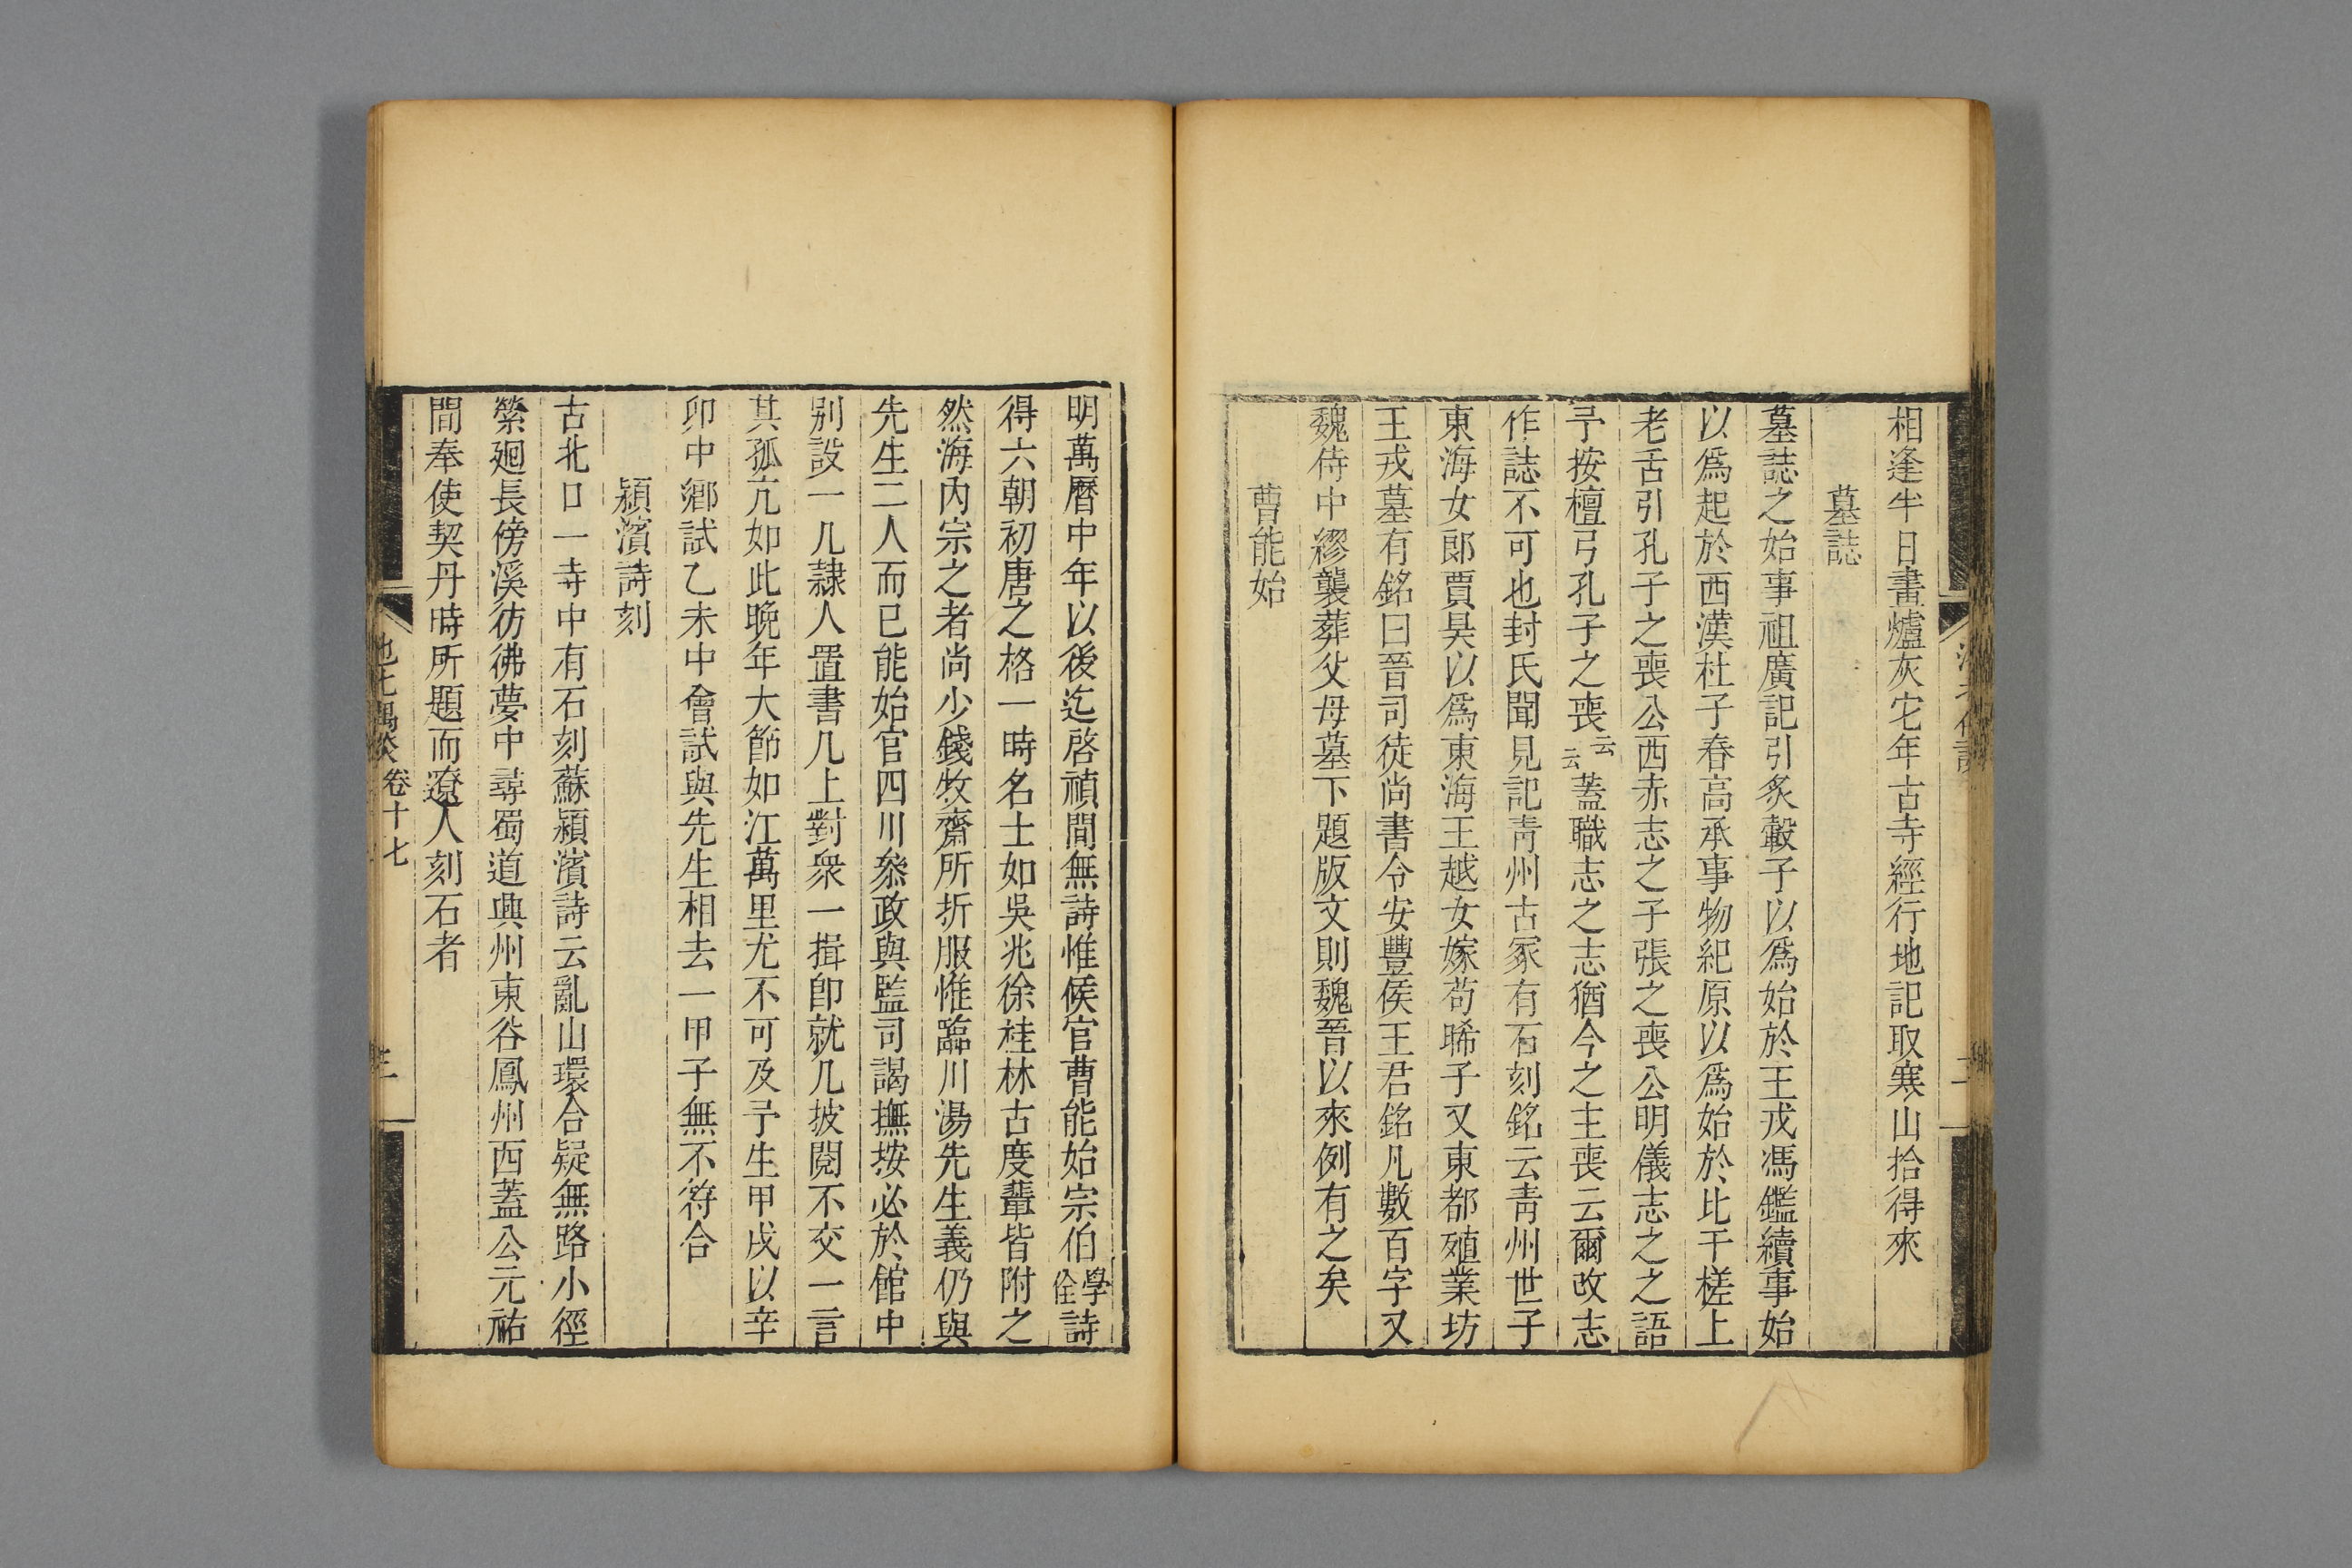 相逢半日畫爐灰它年古寺經行地記取寒山拾得來
墓誌
墓誌之始事祖廣記引炙轂子以爲始於王戎馮鑑續事始
以爲起於西漢杜子春高承事物紀原以爲始於比干槎上
老舌引孔子之喪公西赤志之子張之喪公明儀志之之語
予按檀弓孔子之喪云云蓋職志之志猶今之主喪云爾改志
作誌不可也封氏聞見記青州古冢有石刻銘云青州世子
東海女郎賈昊以爲東海王越女嫁茍晞子又東都殖業坊
王戎墓有銘曰晉司徒尚書令安豐侯王君銘凡數百字又
魏侍中繆襲葬父母墓下題版文則魏晉以來例有之矣
曹能始
明萬曆中年以後迄啓禎間無詩惟侯官曹能始宗伯學佺詩
得六朝初唐之格一時名士如吳兆徐桂林古度輩皆附之
然海內宗之者尚少錢牧齋所折服惟臨川湯先生義仍與
先生二人而已能始官四川叅政與監司謁撫按必於館中
別設一几隷人置書几上對衆一揖卽就几披閱不交一言
其孤亢如此晚年大節如江萬里尤不可及予生甲戌以辛
卯中鄉試乙未中會試與先生相去一甲子無不符合
潁濱詩刻
古北口一寺中有石刻蘇潁濱詩云亂山環合疑無路小徑
縈廻長傍溪彷彿夢中尋蜀道興州東谷鳳州西蓋公元祐
間奉使契丹時所題而遼人刻石者
池北偶談 卷十七